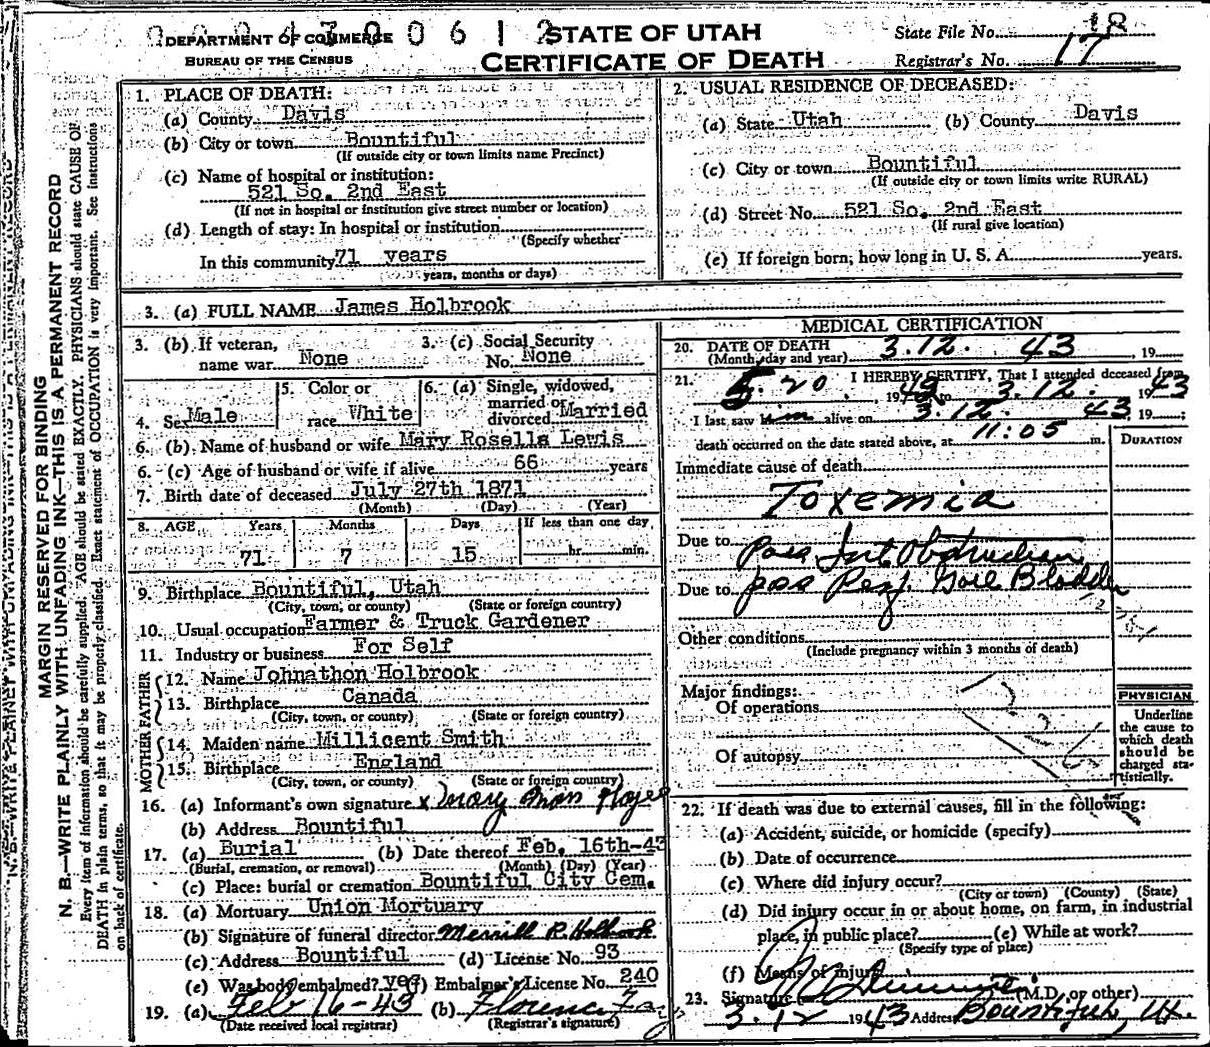 DEPARTMENT OF COMMERCE
BUREAU OF THE CENSUS
0 0 6 1 2
STATE OF UTAH
CERTIFICATE OF DEATH
State File No. 18
Registrar's No. 17
MARGIN RESERVED FOR BINDING
N. B.—WRITE PLAINLY WITH UNFADING INK—THIS IS A PERMANENT RECORD
Every item of information should be carefully supplied. AGE should be stated EXACTLY. PHYSICIANS should state CAUSE OF
DEATH in plain terms, so that it may be properly classified. Exact statement of OCCUPATION is very important. See instructions
on back of certificate.
1. PLACE OF DEATH:
(a) County Davis
(b) City or town Bountiful
(If outside city or town limits name Precinct)
(c) Name of hospital or institution:
521 So. 2nd East
(If not in hospital or institution give street number or location)
(d) Length of stay: In hospital or institution
(Specify whether
In this community 71 years
years, months or days)
2. USUAL RESIDENCE OF DECEASED:
(a) State Utah (b) County Davis
(c) City or town Bountiful
(If outside city or town limits write RURAL)
(d) Street No. 521 So. 2nd East
(If rural give location)
(e) If foreign born, how long in U. S. A. years.
3. (a) FULL NAME James Holbrook
3. (b) If veteran, name war None
3. (c) Social Security No. None
4. Sex Male
5. Color or race White
6. (a) Single, widowed, married or divorced Married
6. (b) Name of husband or wife Mary Rosella Lewis
6. (c) Age of husband or wife if alive 66 years
7. Birth date of deceased July 27th 1871
(Month) (Day) (Year)
8. AGE Years Months Days If less than one day
71 7 15 hr. min.
9. Birthplace Bountiful, Utah
(City, town, or county) (State or foreign country)
10. Usual occupation Farmer & Truck Gardener
11. Industry or business For Self
FATHER
12. Name Johnathon Holbrook
13. Birthplace Canada
(City, town, or county) (State or foreign country)
MOTHER
14. Maiden name Millicent Smith
15. Birthplace England
(City, town, or county) (State or foreign country)
16. (a) Informant's own signature x Mary
(b) Address Bountiful
17. (a) Burial (b) Date thereof Feb. 16th-43
(Burial, cremation, or removal) (Month) (Day) (Year)
(c) Place: burial or cremation Bountiful City Cem.
18. (a) Mortuary Union Mortuary
(b) Signature of funeral director Merrill R Holbrook
(c) Address Bountiful (d) License No. 93
(e) Was body embalmed? yes (f) Embalmer's License No. 240
19. (a) Feb 16-43 (b) Florence
(Date received local registrar) (Registrar's signature)
MEDICAL CERTIFICATION
20. DATE OF DEATH
(Month, day and year) 3.12. 43, 19
21. I HEREBY CERTIFY, That I attended deceased from
5.20, 1942 to 3.12. 1943
I last saw him alive on 3.12. 43 19 ;
death occurred on the date stated above, at 11:05 m.
DURATION
Immediate cause of death
Toxemia
Due to poss Int Obstruction
Due to poss Perf. Gall Bladder
Other conditions
(Include pregnancy within 3 months of death)
Major findings:
Of operations
Of autopsy
PHYSICIAN
Underline
the cause to
which death
should be
charged sta-
tistically.
22. If death was due to external causes, fill in the following:
(a) Accident, suicide, or homicide (specify)
(b) Date of occurrence
(c) Where did injury occur?
(City or town) (County) (State)
(d) Did injury occur in or about home, on farm, in industrial
place, in public place? (e) While at work?
(Specify type of place)
(f) Means of injury
23. Signature (M.D. or other)
3-12 1943 Address Bountiful, Ut.